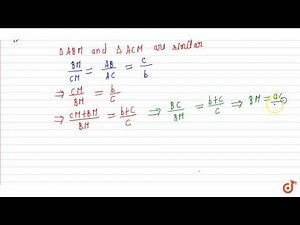 △ABM and △ACM are similar
BM/CM = AB/AC = c/b
⇒ CM/BM = b/c
⇒ CM+BM/BM = b+c/c ⇒ BC/BM = b+c/c ⇒ BM = ac